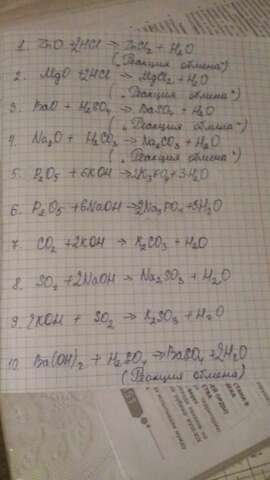 1. ZnO + 2HCl → ZnCl₂ + H₂O
(„Реакция обмена")
2. MgO + 2HCl → MgCl₂ + H₂O
(„Реакция обмена")
3. BaO + H₂SO₄ → BaSO₄ + H₂O
(„Реакция обмена")
4. Na₂O + H₂CO₃ → Na₂CO₃ + H₂O
(„Реакция обмена")
5. P₂O₅ + 6KOH → 2K₃PO₄ + 3H₂O
6. P₂O₅ + 6NaOH → 2Na₃PO₄ + 3H₂O
7. CO₂ + 2KOH → K₂CO₃ + H₂O
8. SO₂ + 2NaOH → Na₂SO₃ + H₂O
9. 2KOH + SO₂ → K₂SO₃ + H₂O
10. Ba(OH)₂ + H₂SO₄ → BaSO₄ + 2H₂O
(Реакция обмена)